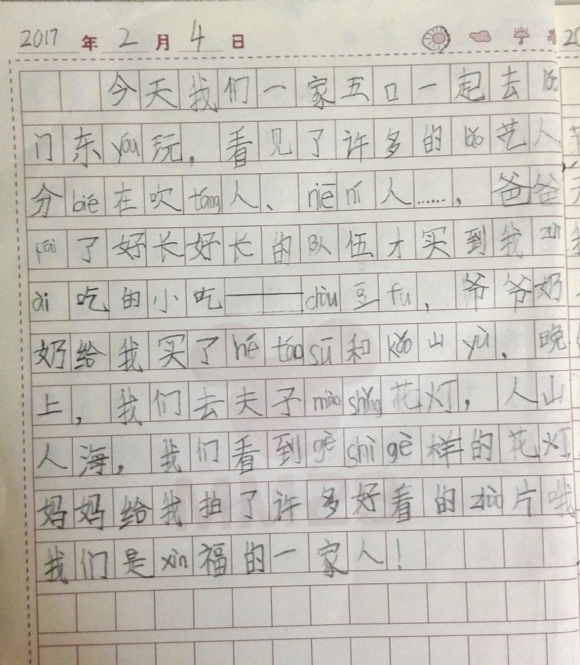 2017 年 2 月 4 日
今天我们一家五口一起去lǎo
门东yóu玩，看见了许多的lǎo艺人
分bié在吹táng人、niē ní人……，爸爸
pái了好长好长的队伍才买到我zuì
ài吃的小吃——chòu豆fu，爷爷奶
奶给我买了hé táo sū和kǎo山yù，晚
上，我们去夫子miào shǎng花灯，人山
人海，我们看到gè shì gè样的花灯
妈妈给我拍了许多好看的zhào片哦
我们是xìn福的一家人！